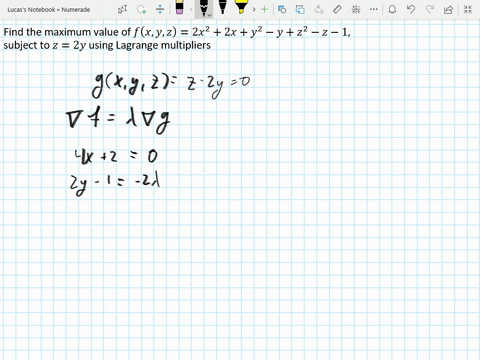 Lucas's Notebook » Numerade
Find the maximum value of f(x, y, z) = 2x² + 2x + y² − y + z² − z − 1,
subject to z = 2y using Lagrange multipliers
g(x, y, z) = z - 2y = 0
∇f = λ∇g
4x + 2 = 0
2y - 1 = -2λ